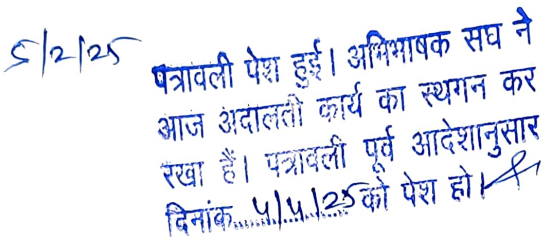 5/2/25 पत्रावली पेश हुई। अभिभाषक सघ ने
आज अदालती कार्य का स्थगन कर
रखा हैं। पत्रावली पूर्व आदेशानुसार
दिनांक 4/4/25 को पेश हो।